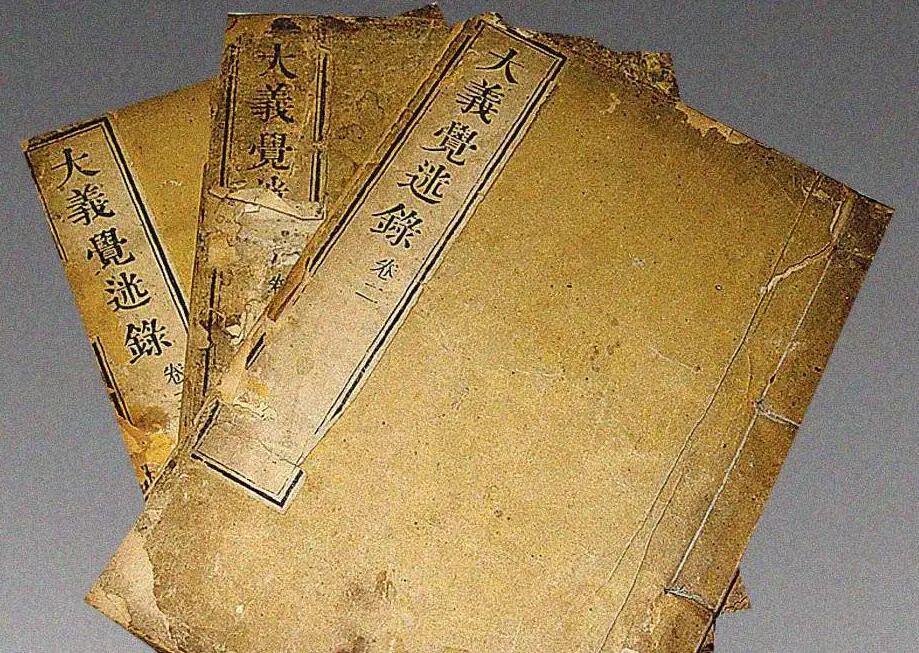 大義覺迷錄 卷二
大義覺迷
大義覺迷錄 卷